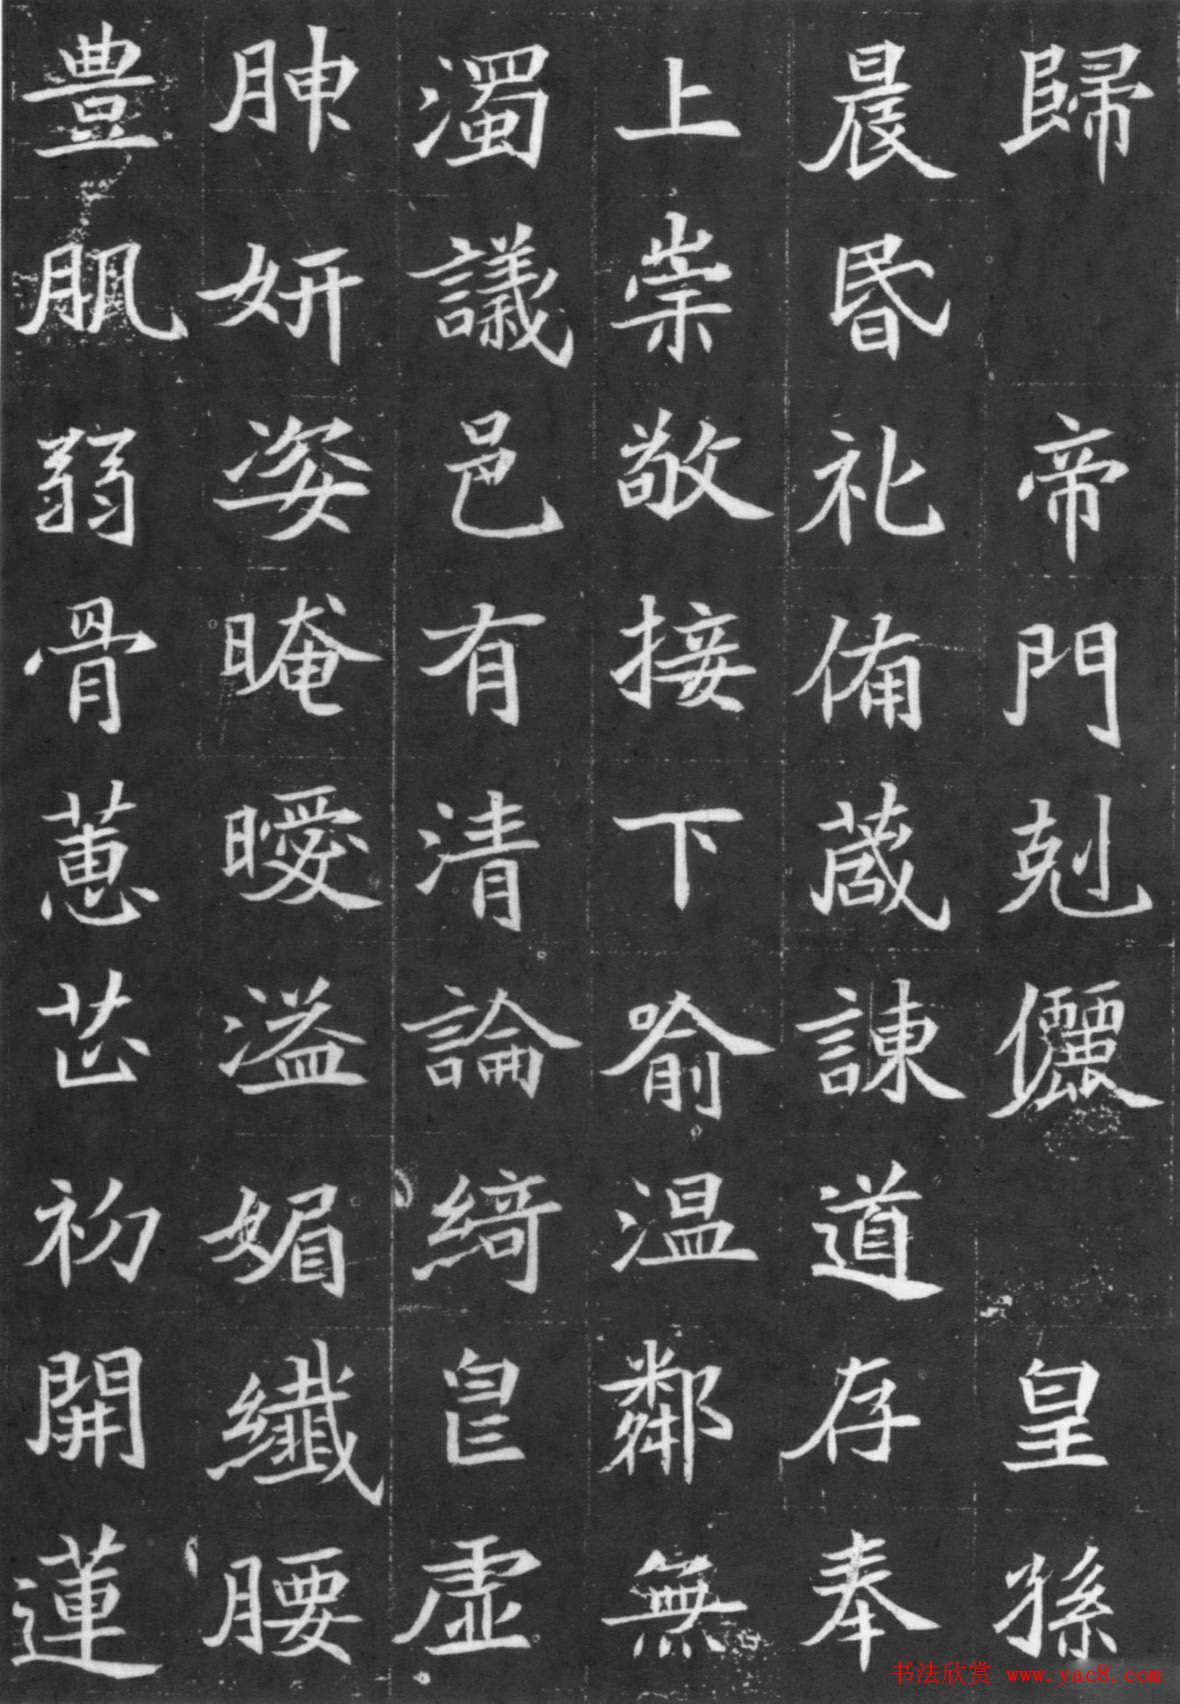 歸 帝門剋儷 皇孫
晨昏礼俻蒇諫道存奉
上崇敬接下喻温鄰無
濁議邑有清論綺皃虛
朏妍姿晻曖溢媚纖腰
豊肌弱骨蕙芷初開蓮
书法欣赏 www.yac8.com